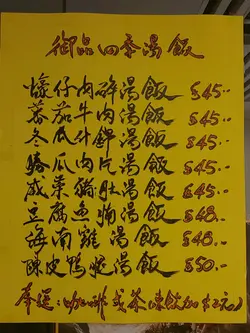 御品四季湯飯
蠔仔肉碎湯飯 $45.-
蕃茄牛肉湯飯 $45.-
冬瓜什錦湯飯 $45.-
勝瓜肉片湯飯 $45.-
咸菜豬肚湯飯 $45.-
豆腐魚湯飯 $48.-
海南雞湯飯 $48.-
陳皮鴨腿湯飯 $50.-
奉送:咖啡或茶(凍飲加